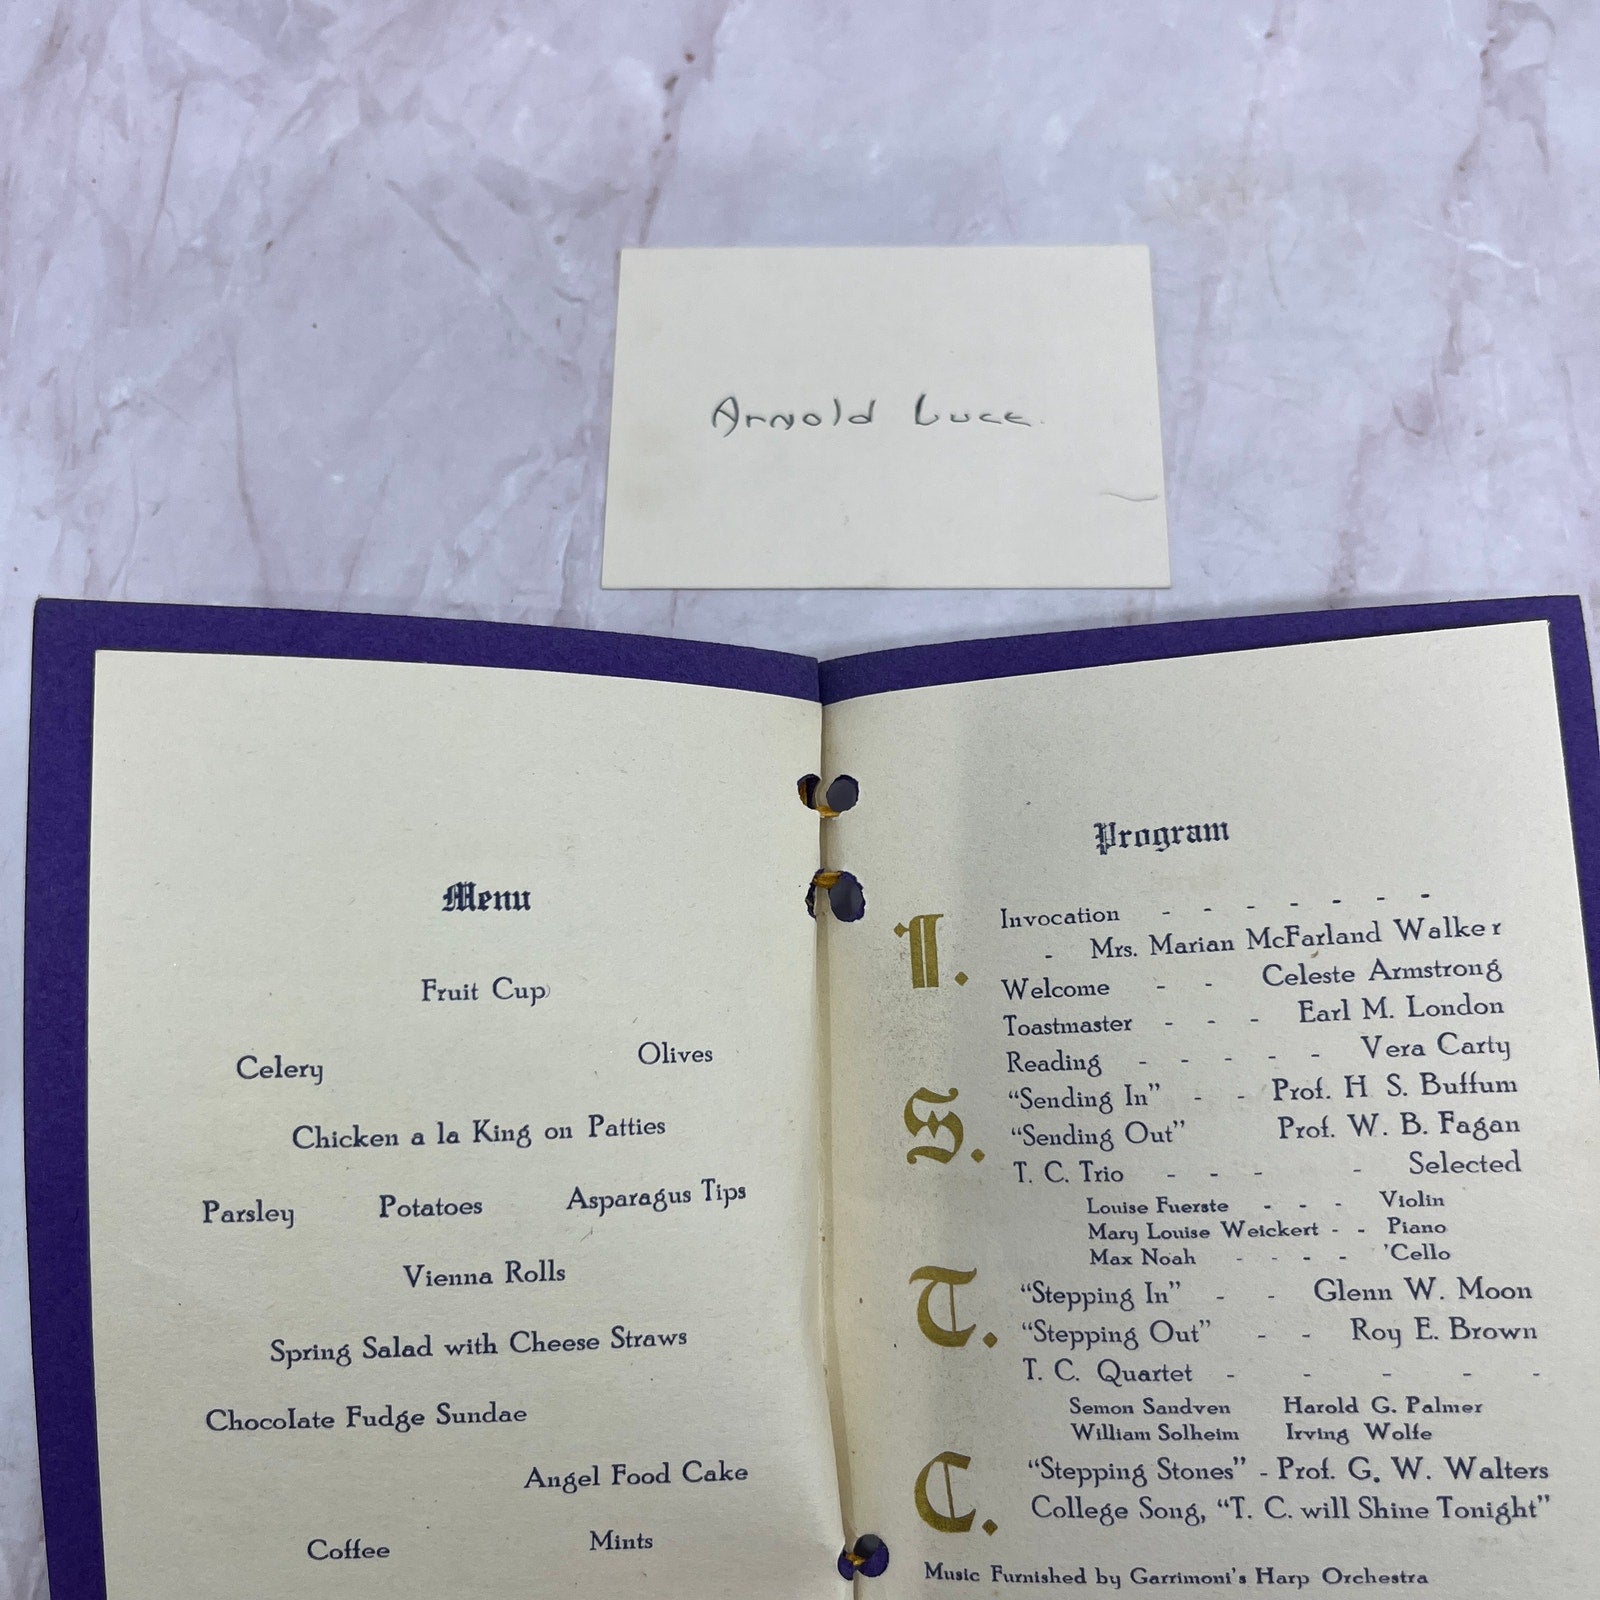 Arnold Luce.
Menu
Fruit Cup
Celery Olives
Chicken a la King on Patties
Parsley Potatoes Asparagus Tips
Vienna Rolls
Spring Salad with Cheese Straws
Chocolate Fudge Sundae
Angel Food Cake
Coffee Mints
Program
I.
Invocation - - - - - - -
- Mrs. Marian McFarland Walker
Welcome - - Celeste Armstrong
Toastmaster - - - Earl M. London
Reading - - - - - Vera Carty
S.
"Sending In" - - Prof. H S. Buffum
"Sending Out" Prof. W. B. Fagan
T. C. Trio - - - - Selected
Louise Fuerste - - - Violin
Mary Louise Weickert - - Piano
Max Noah - - - - 'Cello
T.
"Stepping In" - - Glenn W. Moon
"Stepping Out" - - Roy E. Brown
T. C. Quartet - - - - -
Semon Sandven Harold G. Palmer
William Solheim Irving Wolfe
C.
"Stepping Stones" - Prof. G. W. Walters
College Song, "T. C. will Shine Tonight"
Music Furnished by Garrimoni's Harp Orchestra